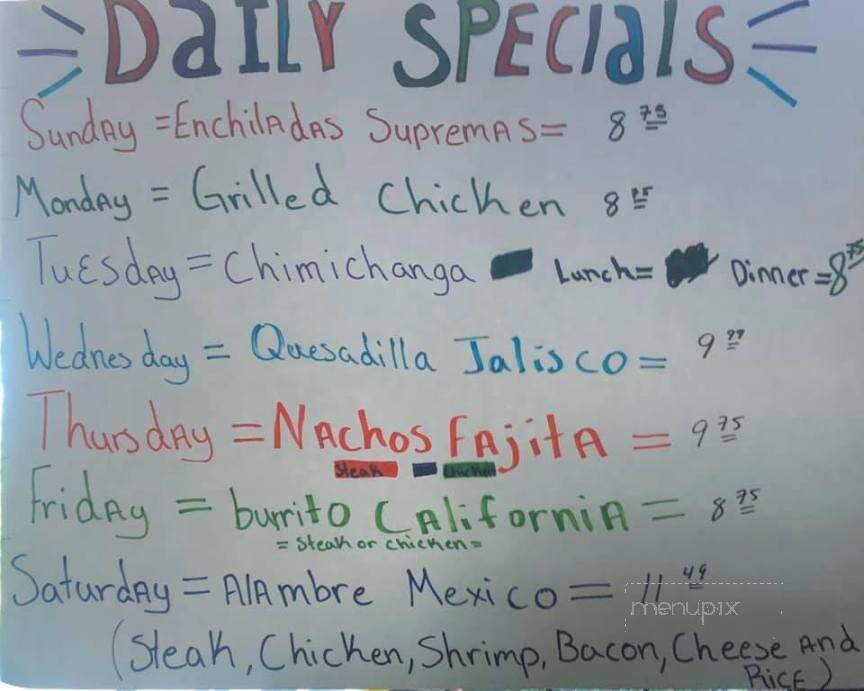 DaILY SPECIalS
Sunday = Enchiladas Supremas = 8 75
Monday = Grilled Chicken 8
Tuesday = Chimichanga Lunch= Dinner = 8 75
Wednesday = Quesadilla Jalisco = 9 99
Thursday = Nachos Fajita = 9 75
Steak Chicken
Friday = burrito California = 8 75
= Steak or chicken =
Saturday = Alambre Mexico = 11 49
menupix
(Steak, Chicken, Shrimp, Bacon, Cheese And
Rice)